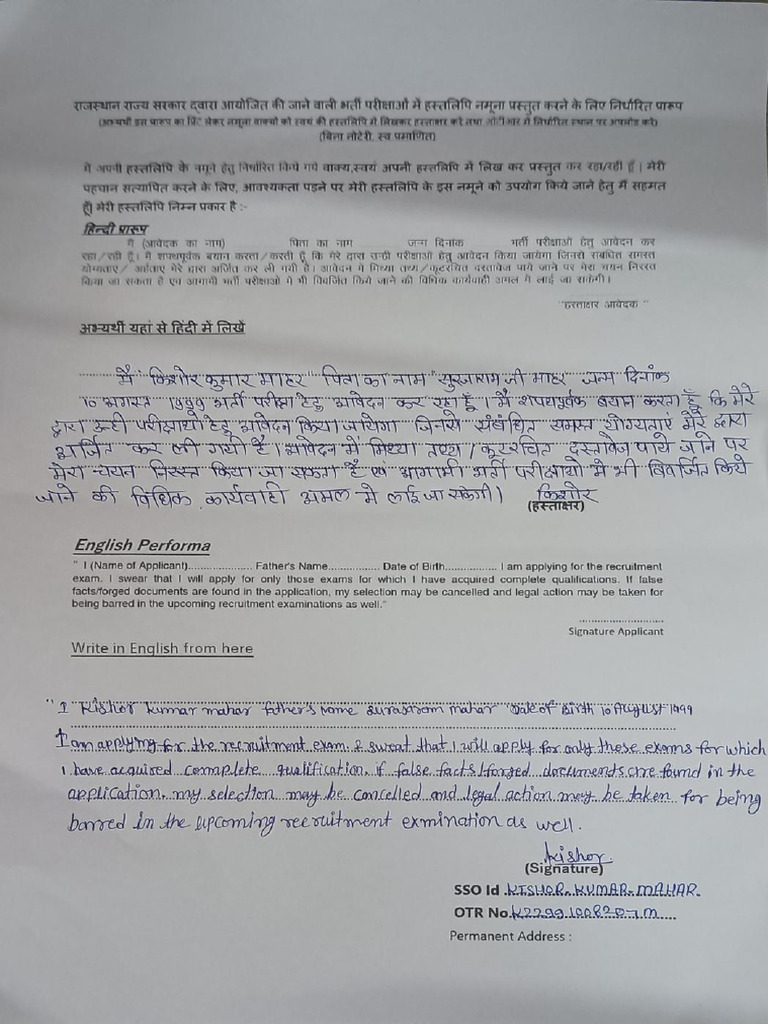 राजस्थान राज्य सरकार द्वारा आयोजित की जाने वाली भर्ती परीक्षाओं में हस्तलिपि नमूना प्रस्तुत करने के लिए निर्धारित प्रारूप
(अभ्यर्थी इस प्रारूप का प्रिंट लेकर नमूना वाक्यो को स्वयं की हस्तलिपि में लिखकर हस्ताक्षर करे तथा ओटीआर में निर्धारित स्थान पर अपलोड करे)
(बिना नोटेरी, स्व प्रमाणित)
में अपनी हस्तलिपि के नमूने हेतु निर्धारित किये गये वाक्य,स्वयं अपनी हस्तलिपि में लिख कर प्रस्तुत कर रहा/रही हूँ । मेरी
पहचान सत्यापित करने के लिए, आवश्यकता पड़ने पर मेरी हस्तलिपि के इस नमूने को उपयोग किये जाने हेतु मैं सहमत
हूँ। मेरी हस्तलिपि निम्न प्रकार है :-
हिन्दी प्रारूप
मैं (आवेदक का नाम) पिता का नाम जन्म दिनांक भर्ती परीक्षाओ हेतु आवेदन कर
रहा/रही हूँ। मै शपथपूर्वक बयान करता/करती हूँ कि मेरे द्वारा उन्ही परीक्षाओ हेतु आवेदन किया जायेगा जिनसे संबंधित समस्त
योग्यताएं/ अर्हताए मेरे द्वारा अर्जित कर ली गयी है। आवेदन मे मिथ्या तथ्य/कूटरचित दस्तावेज पाये जाने पर मेरा चयन निरस्त
किया जा सकता है एवं आगामी भर्ती परीक्षाओ मे भी विवर्जित किये जाने की विधिक कार्यवाही अमल मे लाई जा सकेगी।
"हस्ताक्षर आवेदक "
अभ्यर्थी यहां से हिंदी में लिखें
मैं किशोर कुमार माहर पिता का नाम सुरजाराम जी माहर जन्म दिनांक
10 अगस्त 1999 भर्ती परीक्षा हेतु आवेदन कर रहा हूँ। मैं शपथपूर्वक बयान करता हूँ कि मेरे
द्वारा उन्ही परीक्षाओ हेतु आवेदन किया जायेगा जिनसे संबंधित समस्त योग्यताएं मेरे द्वारा
अर्जित कर ली गयी है। आवेदन में मिथ्या तथ्य / कूटरचित दस्तावेज पाये जाने पर
मेरा चयन निरस्त किया जा सकता है एवं आगामी भर्ती परीक्षाओ मे भी विवर्जित किये
जाने की विधिक कार्यवाही अमल मे लाई जा सकेगी। किशोर
(हस्ताक्षर)
English Performa
" I (Name of Applicant)..................... Father's Name................ Date of Birth............... I am applying for the recruitment
exam. I swear that I will apply for only those exams for which I have acquired complete qualifications. If false
facts/forged documents are found in the application, my selection may be cancelled and legal action may be taken for
being barred in the upcoming recruitment examinations as well."
Signature Applicant
Write in English from here
"I Kishor kumar mahar father's Name surajaram mahar Date of Birth 10 August 1999
I am applying for the recruitment exam. I sweat that I will apply for only these exams for which
I have acquired complete qualification. if false facts/forged documents are found in the
application, my selection may be cancelled and legal action may be taken for being
barred in the upcoming recruitment exmination as well.
Kishor
(Signature)
SSO Id .KISHOR.KUMAR.MAHAR.
OTR No.
Permanent Address :